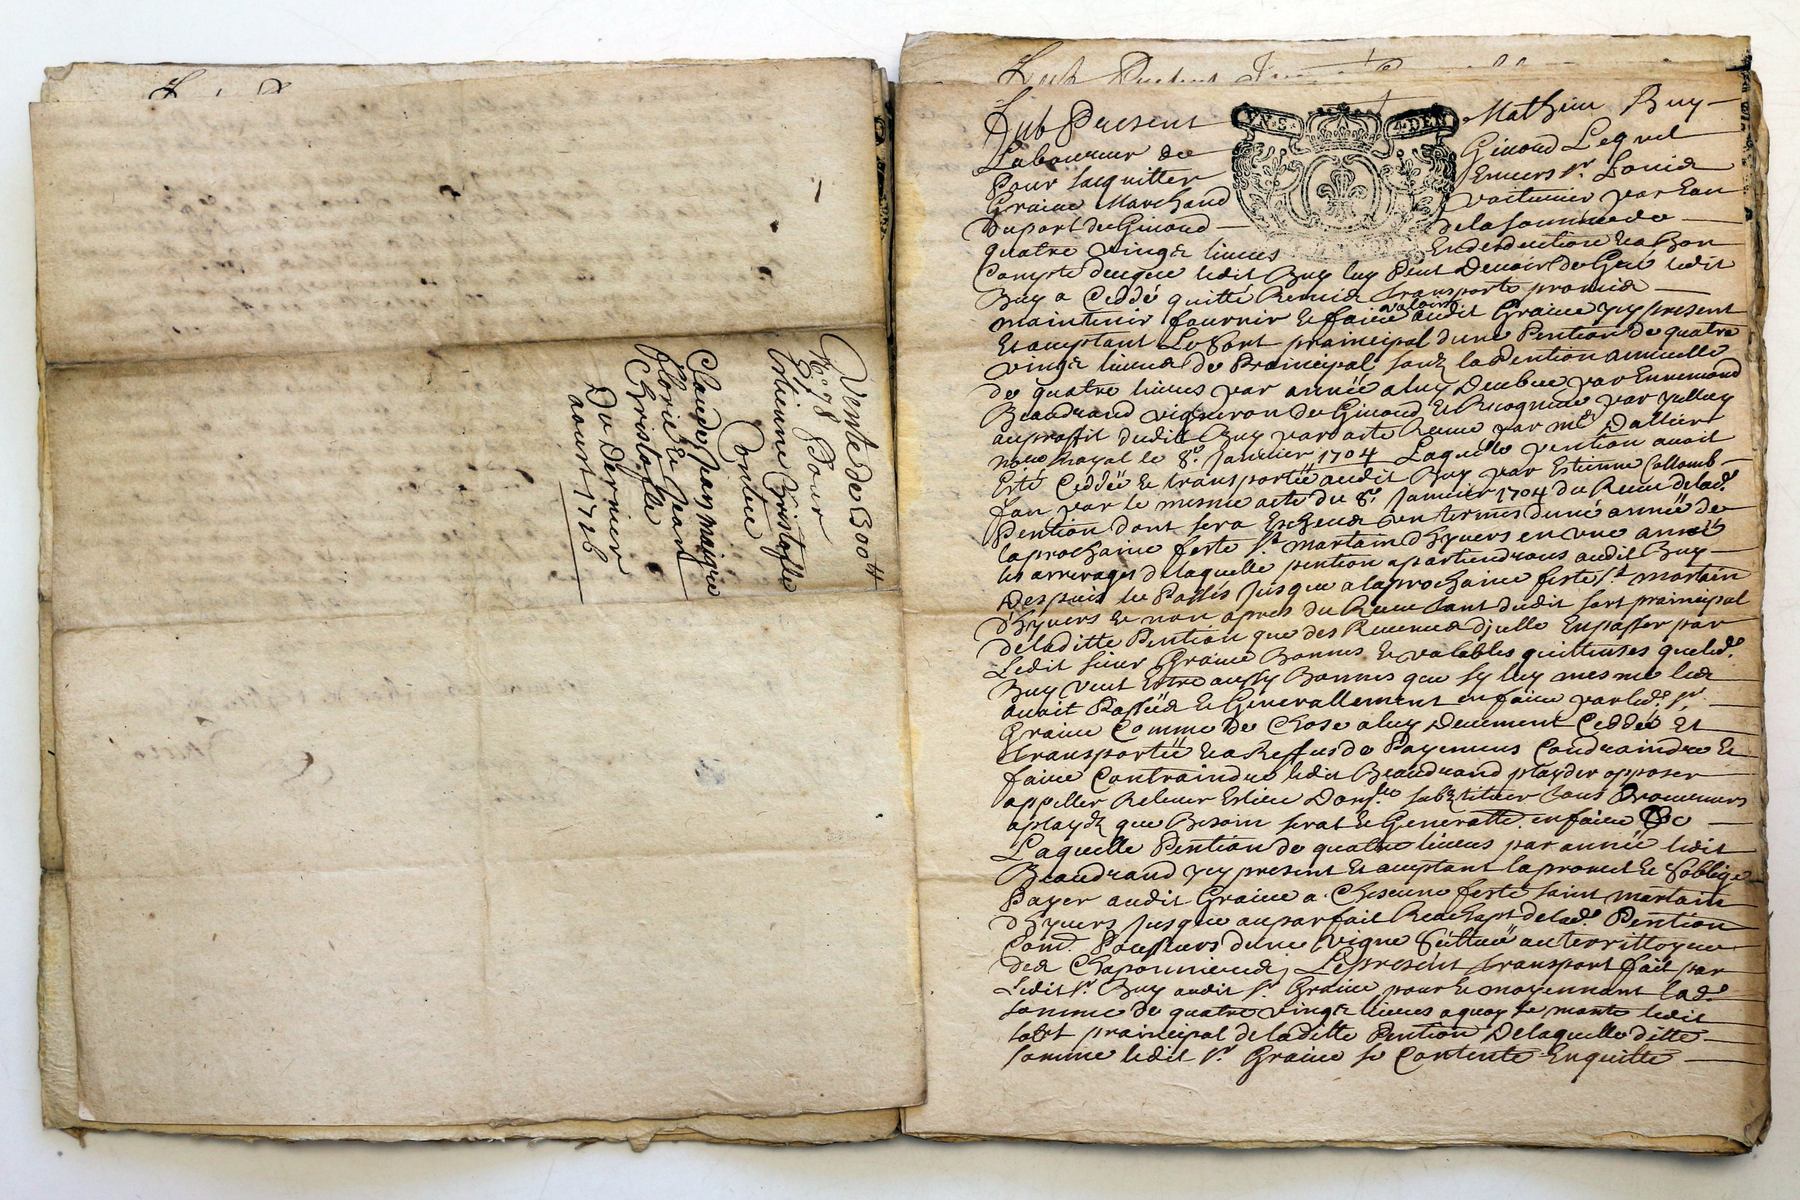 Vente de 300 ₶
N.º 98 Pour
Etienne Cristofle
Contre
Claude Jean maigre
florie Et Jean
Christofle
Du dernier
aoust 1726
Fub Present
Mathieu Buy
Laboureur de
Ginoud Lequel
Pour Sacquitter
Enuers Sr. Louis
Graine Marchand
Voiturier par Eau
Du port de Ginoud
de la Somme de
quatre vingts liures
En deduction et a Bon
VN S.
4 DEN
Compte de ce que ledit Buy luy Peut Deuoir De Gré ledit
Buy a Ceddé quitté Remis transporté promis
maintenir fournir Et faire valoir audit Graine ycy present
Et aceptant Le Sort prainsipal d'une Pention de quatre
vingts liures de Prainsipal, Soub la Pention annuelle
de quatre liures par année a luy Deubue par Ennemond
Beaudrand vigneron de Ginoud Et Recognue par yceluy
au proffit dudit Buy par acte Receu par me. Dallier
nore. Royal le 8e. Januier 1704 Laquelle pention auoit
Esté Ceddée Et transportée audit Buy par Estienne Collomb
Jan par le mesme acte du 8e. Januier 1704 du Reuenu de lade.
Pention dont Sera Escheus un termes d'une année de
la prochaine feste St. martain d'hyuers en une année
les arrerages de laquelle pention apartiendrons audit Buy
Despuis le Passés Jusque a la prochaine feste St. martain
d'hyuers Et non apres du Reuenu tant dudit Sort prainsipal
de laditte Pention que des Reuenus d'jcelle En passer par
Ledit Sieur Graine Bonnes Et valables quittenses que led.
Buy veut Estre aussy Bonnes que Sy luy mesme les
auoit Passées Et Generallement en faire par led. Sr.
Graine Comme de Chose a luy Deuement Ceddée Et
transportée Et a Reffus de Payemens Contraindre Et
faire Contraindre ledit Beaudrand playder opposer
appeller Releuer Eslire Domlle. Substituer tous Procureurs
a playds que Besoin Serat Et Generalle. en faire &c
Laquelle Pention de quatre liures par année ledit
Beaudrand ycy present Et aceptant la promet Et S'oblige
Payer audit Graine a Chescune feste Saint martain
d'hyuers Jusque au parfait Reachapt de lade. Pention
Comme Possesseurs d'une vigne Scittuée au territtoyre
des Chaponnieres, Le present transport fait par
Ledit Sr. Buy audit Sr. Graine pour Et moyennant lade.
Somme de quatre vingts liures a quoy Se monte ledit
Sort prainsipal de laditte Pention De laquelle ditte
Somme ledit Sr. Graine Se Contente En quitte